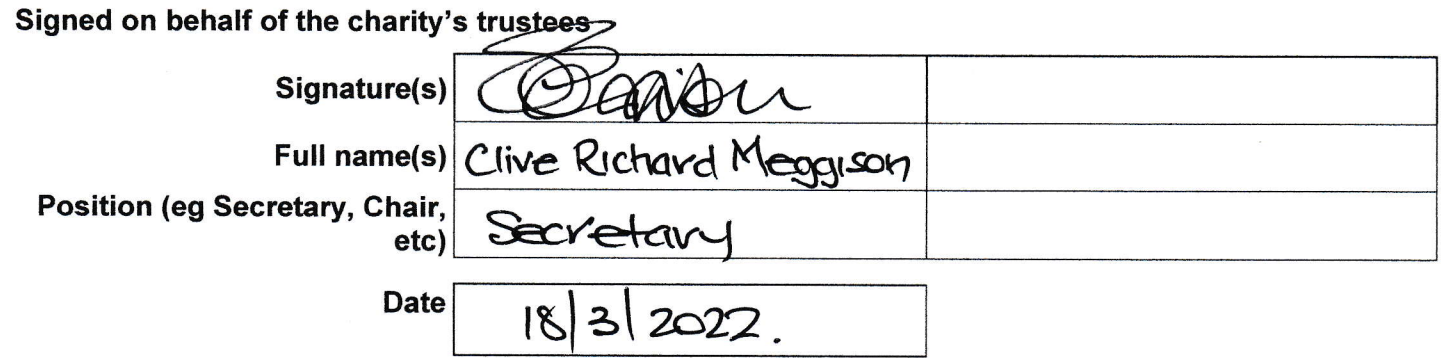 Signed on behalf of the charity's trustees
Signature(s)
Full name(s) Clive Richard Meggison
Position (eg Secretary, Chair,
etc) Secretary
Date 18/3/2022.